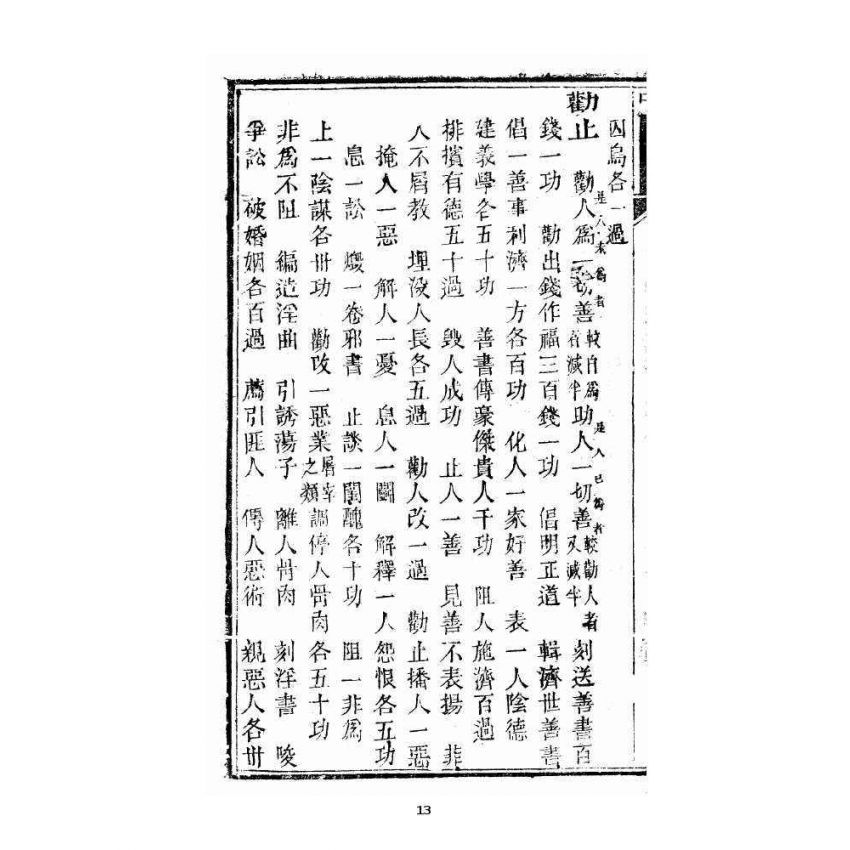 囚鳥各一過
勸止 勸人爲一切善較自爲者減半功人一切善較勸人者又減半 刻送善書百
是人未爲者
是人已爲者
錢一功 勸出錢作福三百錢一功 倡明正道 輯濟世善書
倡一善事利濟一方各百功 化人一家好善 表一人陰德
建義學各五十功 善書傳豪傑貴人千功 阻人施濟百過
排擯有德五十過 毀人成功 止人一善 見善不表揚 非
人不屑教 埋没人長各五過 勸人改一過 勸止播人一惡
掩人一惡 解人一憂 息人一鬭 解釋一人怨恨各五功
息一訟 燬一卷邪書 止談一閨醜各十功 阻一非爲
上一陰謀各卅功 勸改一惡業屠宰之類 調停人骨肉各五十功
非爲不阻 編造淫曲 引誘蕩子 離人骨肉 刻淫書 唆
爭訟 破婚姻各百過 薦引匪人 傳人惡術 親惡人各卅
13